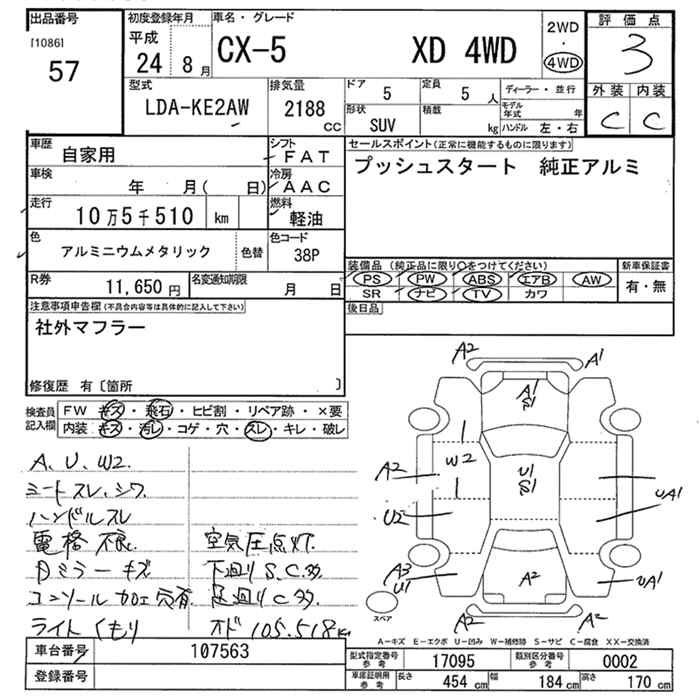 出品番号 初度登録年月 車名・グレード 2WD ・ 4WD 評価点
[1086] 57 平成 24 8月 CX-5 XD 4WD 3
型式 排気量 ドア 5 定員 5人 ディーラー・並行 外装 内装
LDA-KE2AW 2188 cc 形状 SUV 積載 kg モデル年式 年 ハンドル 左・右 C C
車歴 自家用 シフト FAT セールスポイント(正常に機能するものに限ります)
車検 年 月( 日) 冷房 AAC プッシュスタート 純正アルミ
走行 10万5千510 km 燃料 軽油
色 アルミニウムメタリック 色替 色コード 38P
R券 11,650円 名変通知期限 月 日
装備品(純正品に限り○をつけてください) 新車保証書
PS PW ABS エアB AW 有・無
SR ナビ TV カワ
後日品
注意事項申告欄(不具合内容等は具体的に記入して下さい)
社外マフラー
修復歴 有〔箇所 〕
検査員記入欄 FW キズ・飛石・ヒビ割・リペア跡・×要
内装 キズ・汚レ・コゲ・穴・スレ・キレ・破レ
A2 A1
A1
S1
A2 W2 U1
S1 UA1
U2
A3
U1 A2 UA1
A2 A2
スペア
A、U、W2
シートスレ、シワ
ハンドルスレ
電格 不良 空気圧点灯
Dミラーキズ 下廻りS.C.多
コンソール加工穴有 足廻りC多
ライトくもり オド 105,518K
A-キズ E-エクボ U-凹み W-補修跡 S-サビ C-腐食 XX-交換済
車台番号 107563 型式指定番号 参考 17095 類別区分番号 参考 0002
登録番号 車庫証明用 参考 長さ 454cm 幅 184cm 高さ 170cm